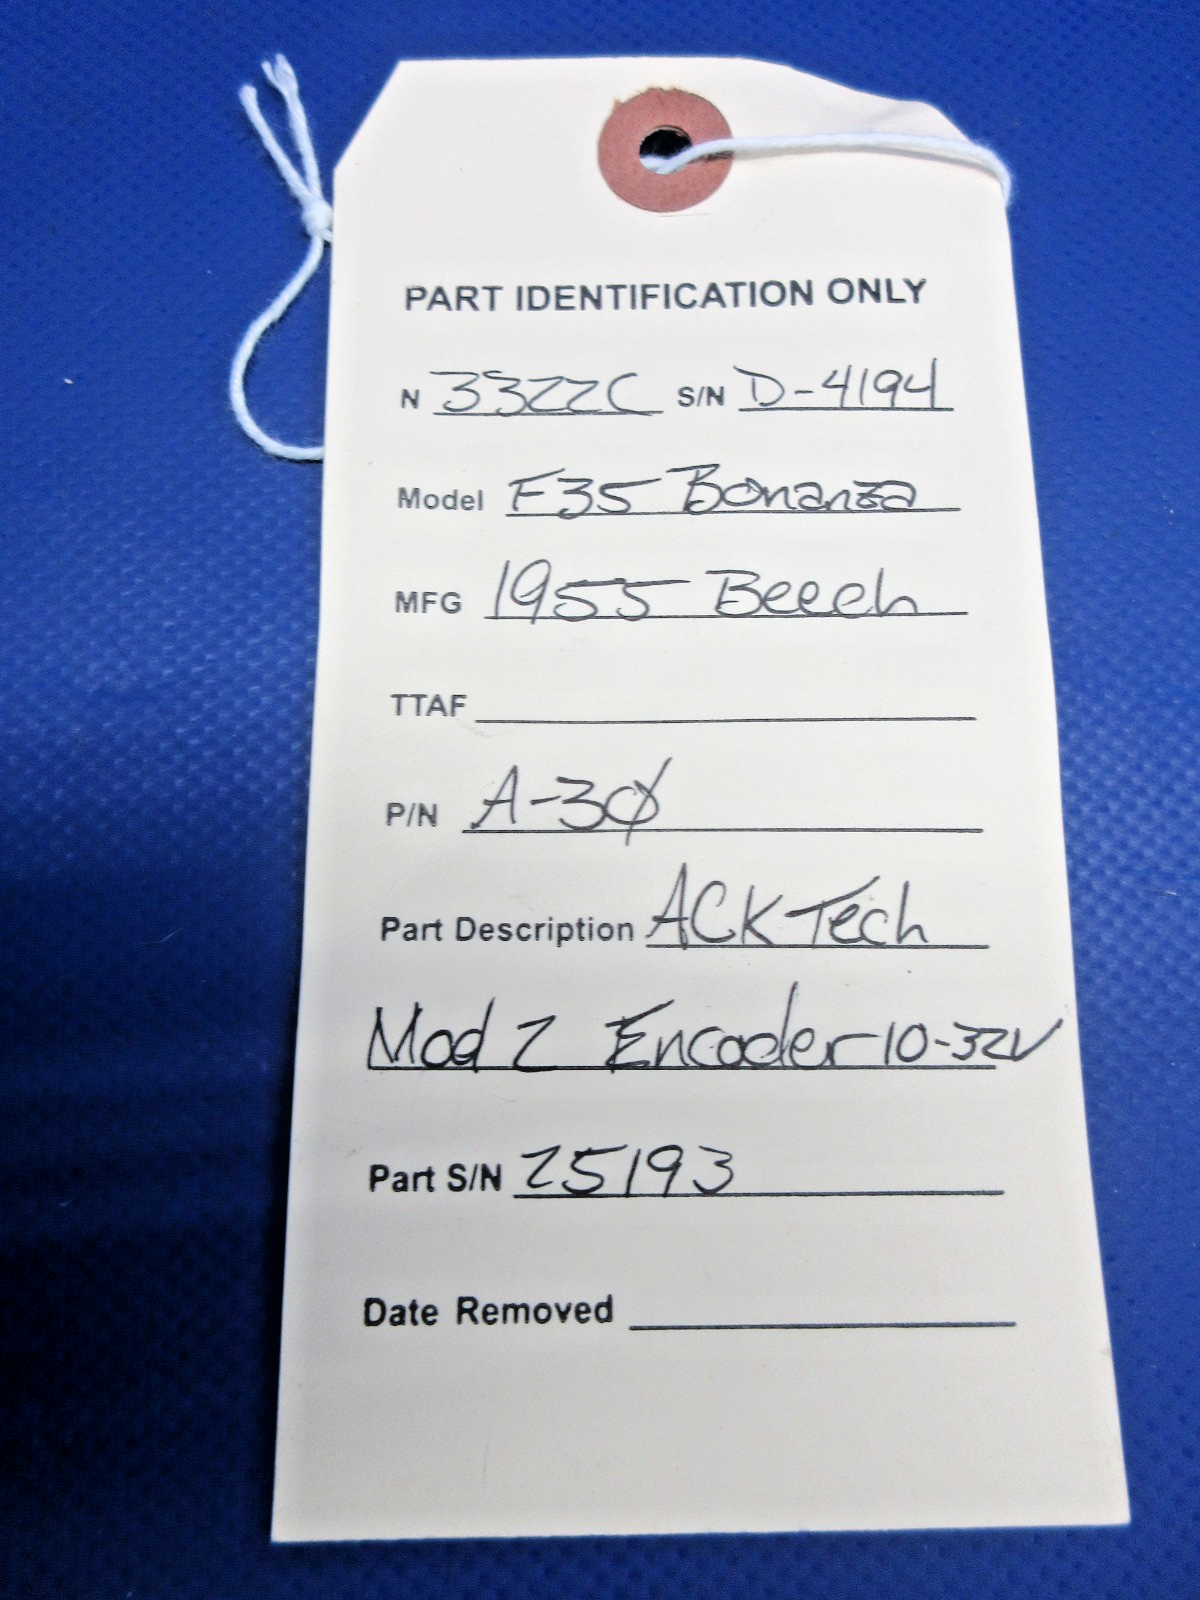 PART IDENTIFICATION ONLY
N 3322C S/N D-4194
Model F35 Bonanza
MFG 1955 Beech
TTAF
P/N A-3Ø
Part Description ACK Tech
Mod 2 Encoder 10-32V
Part S/N 25193
Date Removed